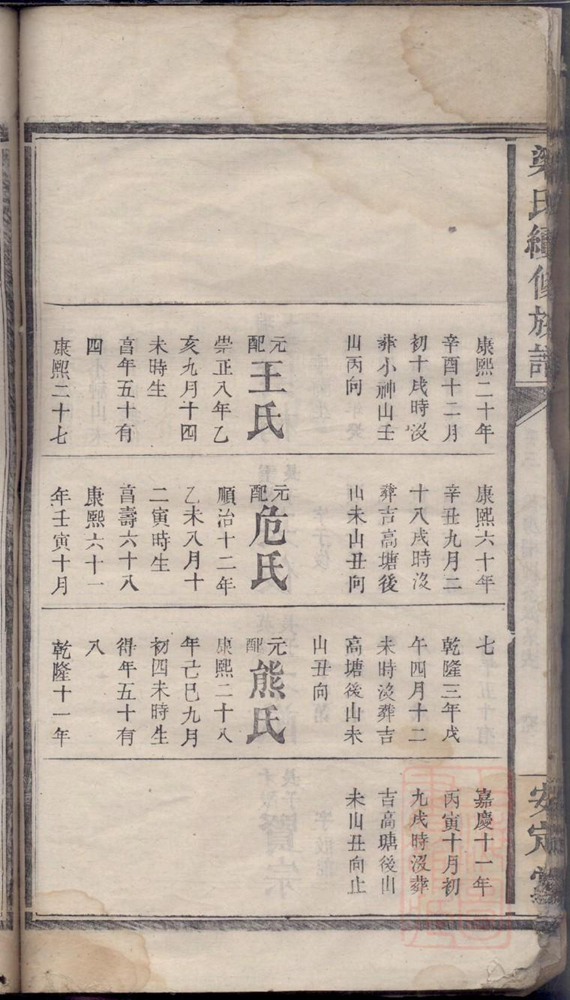 梁氏續修族譜
安定堂
康熙二十年
辛酉十二月
初十戌時沒
葬小神山壬
山丙向
元配王氏
崇正八年乙
亥九月十四
未時生
享年五十有
四
康熙二十七
康熙六十年
辛丑九月二
十八戌時沒
葬吉高塘後
山未山丑向
元配危氏
順治十二年
乙未八月十
二寅時生
享壽六十八
康熙六十一
年壬寅十月
七
乾隆三年戊
午四月十二
未時沒葬吉
高塘後山未
山丑向
元配熊氏
康熙二十八
年己巳九月
初四未時生
得年五十有
八
乾隆十一年
嘉慶十一年
丙寅十月初
九戌時沒葬
吉高塘後山
未山丑向止